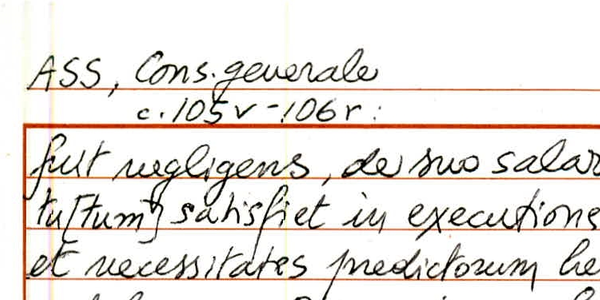 ASS, Cons. generale
c. 105v-106r:
fuit negligens, de suo salar
tu[tum] satisfiet in executione
et necessitates predictorum he